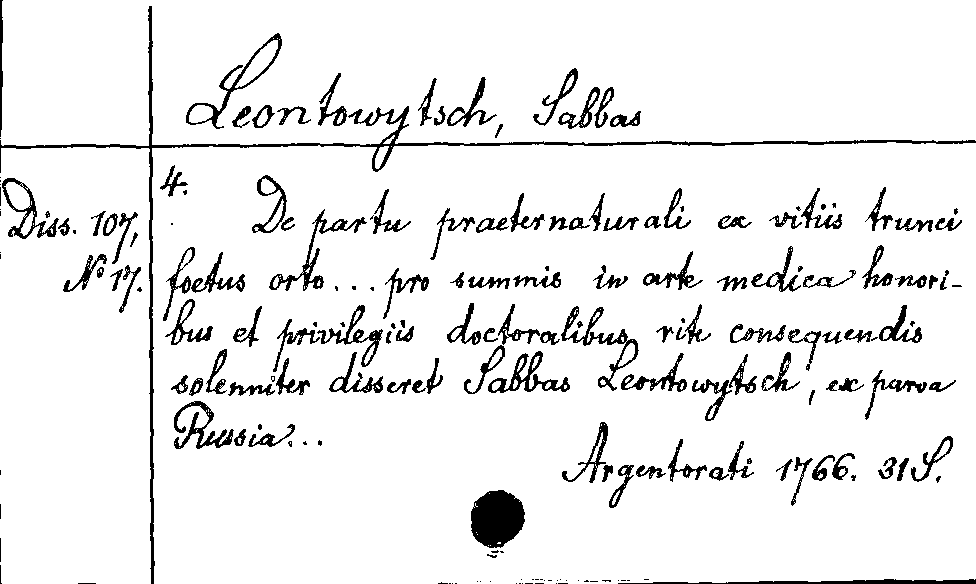 Leontowytsch, Sabbas
Diss. 107,
No 17.
4.
De partu praeternaturali ex vitiis trunci
foetus orto... pro summis in arte medica honori-
bus et privilegiis doctoralibus rite consequendis
solenniter disseret Sabbas Leontowytsch, ex parva
Russia...
Argentorati 1766. 31 S.